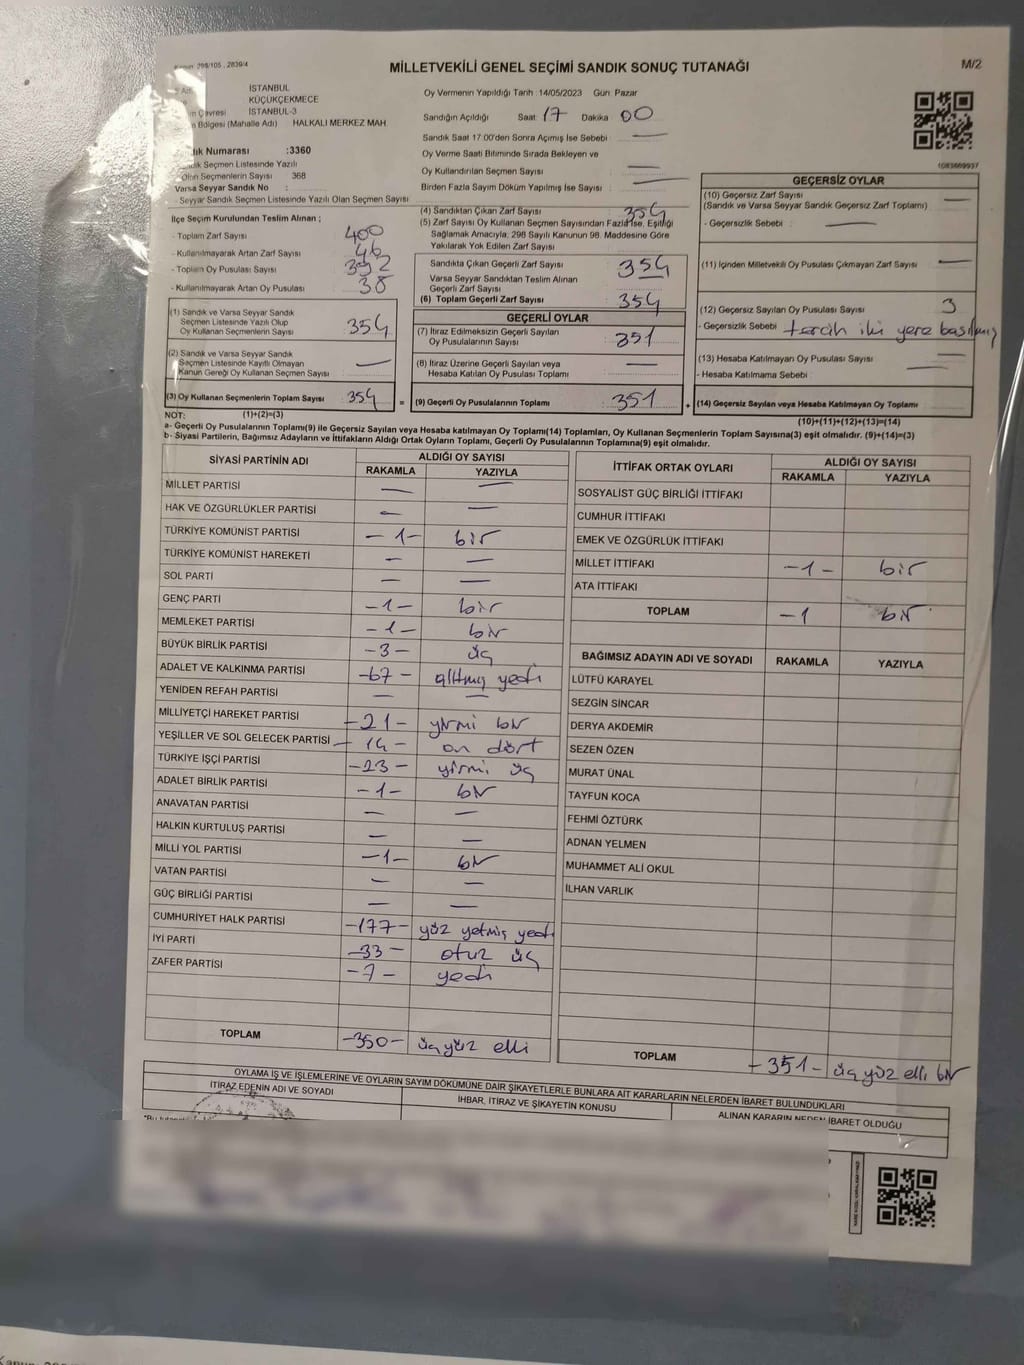 Kanun: 298/105 , 2839/4
MİLLETVEKİLİ GENEL SEÇİMİ SANDIK SONUÇ TUTANAĞI
M/2
İSTANBUL
KÜÇÜKÇEKMECE
İSTANBUL-3
HALKALI MERKEZ MAH.
Oy Vermenin Yapıldığı Tarih :14/05/2023 Gün: Pazar
Sandığın Açıldığı Saat 17 Dakika 00
Sandık Saat 17:00'den Sonra Açılmış İse Sebebi : —
Oy Verme Saati Bitiminde Sırada Bekleyen ve
Oy Kullandırılan Seçmen Sayısı : —
Birden Fazla Sayım Döküm Yapılmış İse Sayısı : —
1083669937
Numarası :3360
Seçmen Listesinde Yazılı
Olan Seçmenlerin Sayısı : 368
Varsa Seyyar Sandık No :
Seyyar Sandık Seçmen Listesinde Yazılı Olan Seçmen Sayısı :
İlçe Seçim Kurulundan Teslim Alınan ;
- Toplam Zarf Sayısı 400
- Kullanılmayarak Artan Zarf Sayısı : 46
- Toplam Oy Pusulası Sayısı : 392
- Kullanılmayarak Artan Oy Pusulası : 38
(1) Sandık ve Varsa Seyyar Sandık
Seçmen Listesinde Yazılı Olup
Oy Kullanan Seçmenlerin Sayısı 354
(2) Sandık ve Varsa Seyyar Sandık
Seçmen Listesinde Kayıtlı Olmayan
Kanun Gereği Oy Kullanan Seçmen Sayısı : —
(3) Oy Kullanan Seçmenlerin Toplam Sayısı 354
(4) Sandıktan Çıkan Zarf Sayısı 354
(5) Zarf Sayısı Oy Kullanan Seçmen Sayısından Fazla İse, Eşitliği
Sağlamak Amacıyla, 298 Sayılı Kanunun 98. Maddesine Göre
Yakılarak Yok Edilen Zarf Sayısı
Sandıkta Çıkan Geçerli Zarf Sayısı : 354
Varsa Seyyar Sandıktan Teslim Alınan
Geçerli Zarf Sayısı
(6) Toplam Geçerli Zarf Sayısı : 354
GEÇERLİ OYLAR
(7) İtiraz Edilmeksizin Geçerli Sayılan
Oy Pusulalarının Sayısı : 351
(8) İtiraz Üzerine Geçerli Sayılan veya
Hesaba Katılan Oy Pusulası Toplamı : —
= (9) Geçerli Oy Pusulalarının Toplamı : 351
GEÇERSİZ OYLAR
(10) Geçersiz Zarf Sayısı
(Sandık ve Varsa Seyyar Sandık Geçersiz Zarf Toplamı) : —
- Geçersizlik Sebebi : —
(11) İçinden Milletvekili Oy Pusulası Çıkmayan Zarf Sayısı : —
(12) Geçersiz Sayılan Oy Pusulası Sayısı : 3
- Geçersizlik Sebebi : tercih iki yere basılmış
(13) Hesaba Katılmayan Oy Pusulası Sayısı : —
- Hesaba Katılmama Sebebi : —
+ (14) Geçersiz Sayılan veya Hesaba Katılmayan Oy Toplamı
NOT: (1)+(2)=(3)
(10)+(11)+(12)+(13)=(14)
a- Geçerli Oy Pusulalarının Toplamı(9) ile Geçersiz Sayılan veya Hesaba katılmayan Oy Toplamı(14) Toplamları, Oy Kullanan Seçmenlerin Toplam Sayısına(3) eşit olmalıdır. (9)+(14)=(3)
b- Siyasi Partilerin, Bağımsız Adayların ve İttifakların Aldığı Ortak Oyların Toplamı, Geçerli Oy Pusulalarının Toplamına(9) eşit olmalıdır.
SİYASİ PARTİNİN ADI ALDIĞI OY SAYISI
RAKAMLA YAZIYLA
MİLLET PARTİSİ — —
HAK VE ÖZGÜRLÜKLER PARTİSİ — —
TÜRKİYE KOMÜNİST PARTİSİ -1- bir
TÜRKİYE KOMÜNİST HAREKETİ — —
SOL PARTİ — —
GENÇ PARTİ -1- bir
MEMLEKET PARTİSİ -1- bir
BÜYÜK BİRLİK PARTİSİ -3- üç
ADALET VE KALKINMA PARTİSİ -67- altmış yedi
YENİDEN REFAH PARTİSİ — —
MİLLİYETÇİ HAREKET PARTİSİ -21- yirmi bir
YEŞİLLER VE SOL GELECEK PARTİSİ -14- on dört
TÜRKİYE İŞÇİ PARTİSİ -23- yirmi üç
ADALET BİRLİK PARTİSİ -1- bir
ANAVATAN PARTİSİ — —
HALKIN KURTULUŞ PARTİSİ — —
MİLLİ YOL PARTİSİ -1- bir
VATAN PARTİSİ — —
GÜÇ BİRLİĞİ PARTİSİ — —
CUMHURİYET HALK PARTİSİ -177- yüz yetmiş yedi
İYİ PARTİ -33- otuz üç
ZAFER PARTİSİ -7- yedi
TOPLAM -350- üç yüz elli
İTTİFAK ORTAK OYLARI ALDIĞI OY SAYISI
RAKAMLA YAZIYLA
SOSYALİST GÜÇ BİRLİĞİ İTTİFAKI
CUMHUR İTTİFAKI
EMEK VE ÖZGÜRLÜK İTTİFAKI
MİLLET İTTİFAKI -1- bir
ATA İTTİFAKI
TOPLAM -1 bir
BAĞIMSIZ ADAYIN ADI VE SOYADI RAKAMLA YAZIYLA
LÜTFÜ KARAYEL
SEZGİN SİNCAR
DERYA AKDEMİR
SEZEN ÖZEN
MURAT ÜNAL
TAYFUN KOCA
FEHMİ ÖZTÜRK
ADNAN YELMEN
MUHAMMET ALİ OKUL
İLHAN VARLIK
TOPLAM -351- üç yüz elli bir
OYLAMA İŞ VE İŞLEMLERİNE VE OYLARIN SAYIM DÖKÜMÜNE DAİR ŞİKAYETLERLE BUNLARA AİT KARARLARIN NELERDEN İBARET BULUNDUKLARI
İTİRAZ EDENİN ADI VE SOYADI
İHBAR, İTİRAZ VE ŞİKAYETİN KONUSU
ALINAN KARARIN NEDEN İBARET OLDUĞU